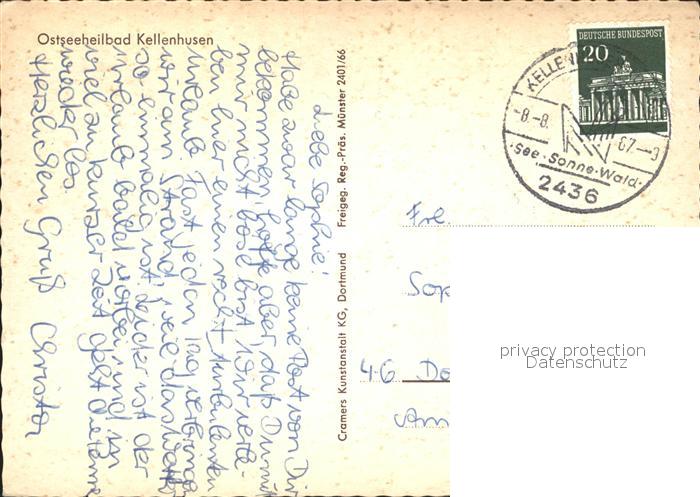 Ostseeheilbad Kellenhusen
Liebe Sophie!
Habe zwar lange keine Post von Dir
bekommen, hoffe aber, daß Du mit
mir nicht böse bist. Wir verle-
ben hier einen recht turbulenten
Urlaub. Fast jeden Tag verbringen
wir am Strand, weil das Wetter
so einmalig ist. Leider ist der
Urlaub bald vorbei und in
viel zu kurzer Zeit geht die Penne
wieder los.
Herzlichen Gruß Christa
Cramers Kunstanstalt KG, Dortmund Freigeg. Reg.-Präs. Münster 2401/66
DEUTSCHE BUNDESPOST
20
KELLEN
-8.-8.
67.-9
See·Sonne·Wald·
2436
Frl.
Sop
46 Do
Am
privacy protection
Datenschutz